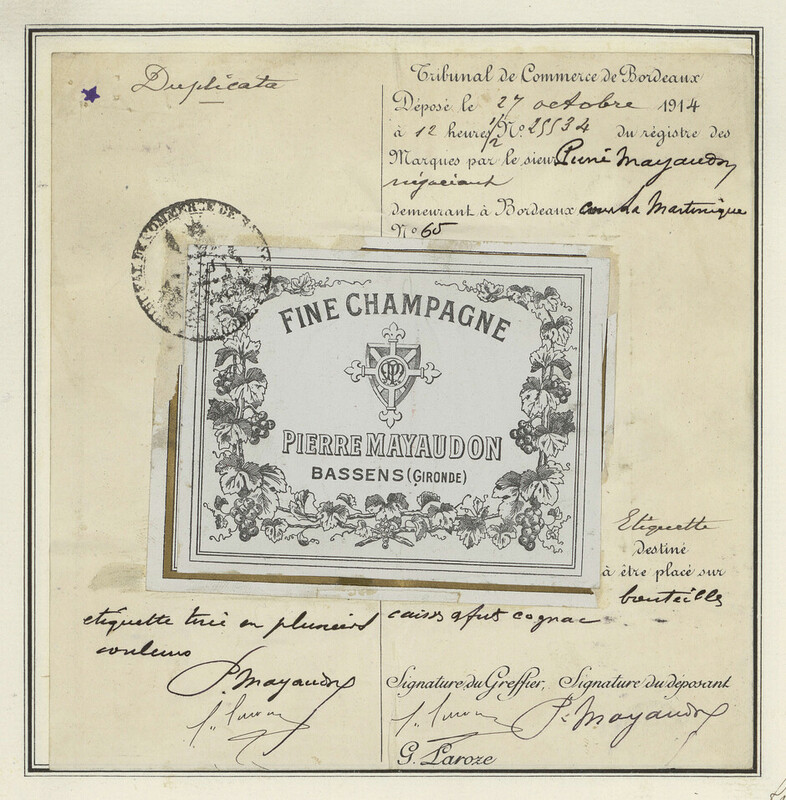 Duplicata
Tribunal de Commerce de Bordeaux
Déposé le 27 octobre 1914
à 12 heures 1/2 N° 25534 du régistre des
Marques par le sieur Pierre Mayaudon
négociant
demeurant à Bordeaux cours la Martinique
N° 65
FINE CHAMPAGNE
PIERRE MAYAUDON
BASSENS (GIRONDE)
Etiquette
destiné
à être placé sur
bouteilles
caisses & futs cognac
etiquette tirée en plusieurs
couleurs
P. Mayaudon
Signature du Greffier, Signature du déposant
P. Mayaudon
G. Laroze